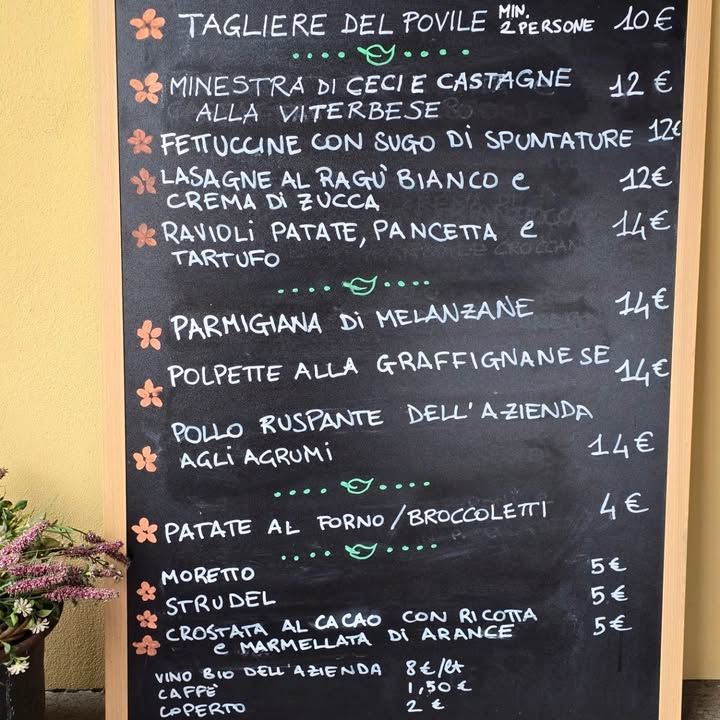 TAGLIERE DEL POVILE MIN. 2 PERSONE 10 €
MINESTRA DI CECI E CASTAGNE 12 €
ALLA VITERBESE
FETTUCCINE CON SUGO DI SPUNTATURE 12€
LASAGNE AL RAGÙ BIANCO e 12€
CREMA DI ZUCCA
RAVIOLI PATATE, PANCETTA e 14€
TARTUFO
PARMIGIANA DI MELANZANE 14€
POLPETTE ALLA GRAFFIGNANESE 14€
POLLO RUSPANTE DELL'AZIENDA
AGLI AGRUMI 14€
PATATE AL FORNO/BROCCOLETTI 4€
MORETTO 5€
STRUDEL 5€
CROSTATA AL CACAO CON RICOTTA 5€
e MARMELLATA DI ARANCE
VINO BIO DELL'AZIENDA 8€/lt
CAFFÈ 1,50 €
COPERTO 2 €